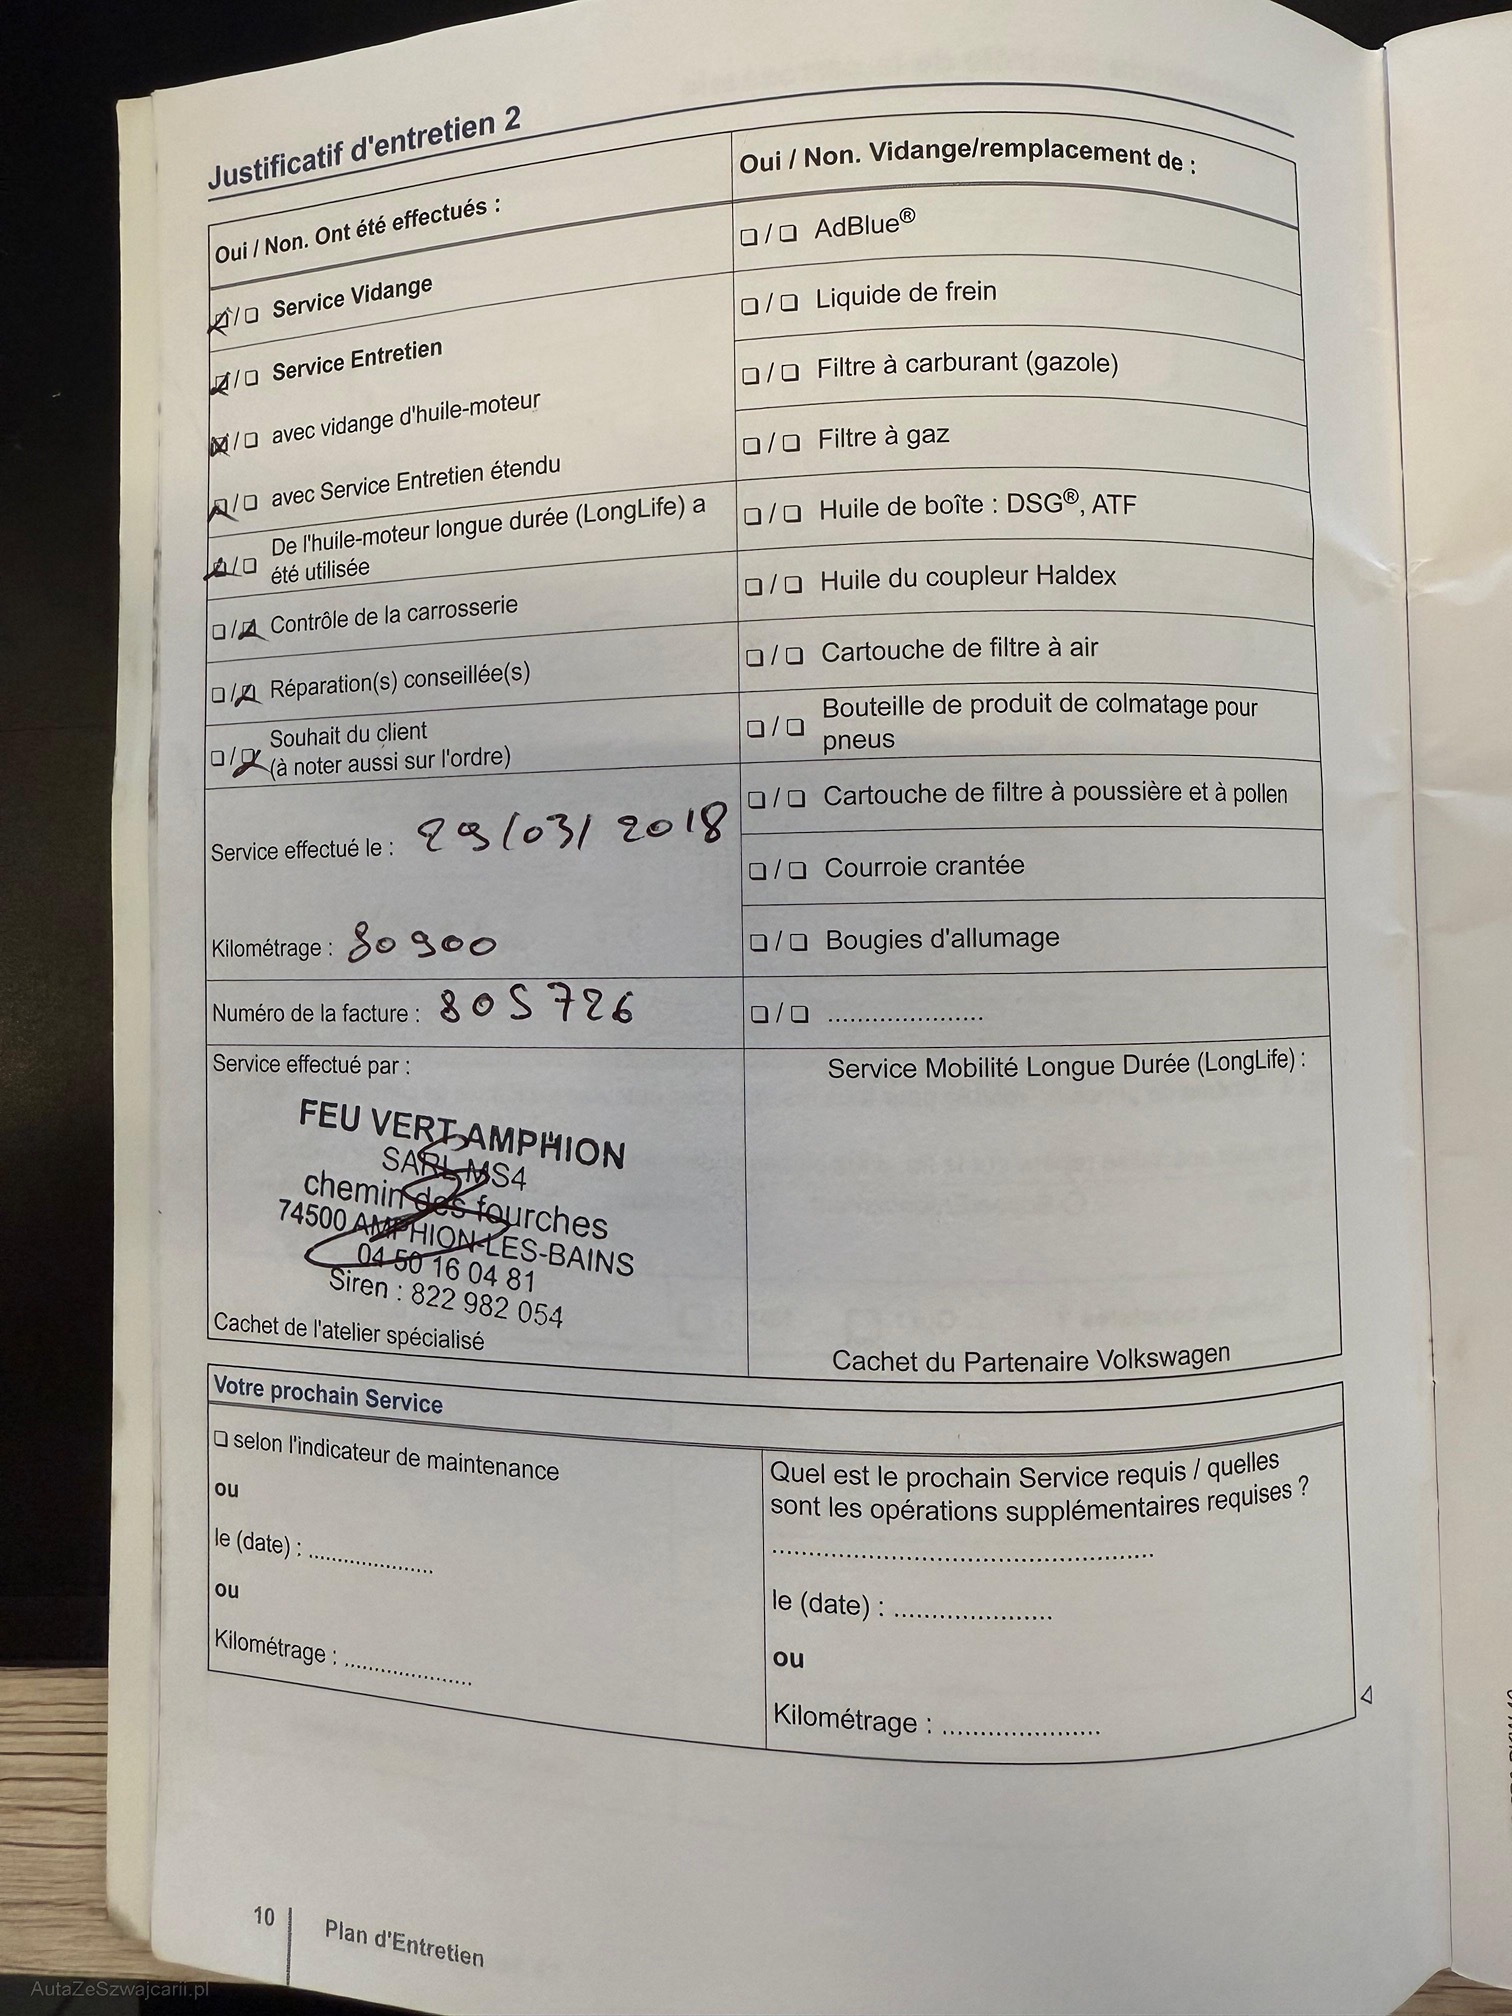 Justificatif d'entretien 2
Oui / Non. Ont été effectués :
Service Vidange
Service Entretien
avec vidange d'huile-moteur
avec Service Entretien étendu
De l'huile-moteur longue durée (LongLife) a
été utilisée
Contrôle de la carrosserie
Réparation(s) conseillée(s)
Souhait du client
(à noter aussi sur l'ordre)
Service effectué le : 29/03/2018
Kilométrage : 80900
Numéro de la facture : 805726
Service effectué par :
FEU VERT AMPHION
SARL MS4
chemin des fourches
74500 AMPHION-LES-BAINS
04 50 16 04 81
Siren : 822 982 054
Cachet de l'atelier spécialisé
Oui / Non. Vidange/remplacement de :
AdBlue®
Liquide de frein
Filtre à carburant (gazole)
Filtre à gaz
Huile de boîte : DSG®, ATF
Huile du coupleur Haldex
Cartouche de filtre à air
Bouteille de produit de colmatage pour
pneus
Cartouche de filtre à poussière et à pollen
Courroie crantée
Bougies d'allumage
.....................
Service Mobilité Longue Durée (LongLife) :
Cachet du Partenaire Volkswagen
Votre prochain Service
selon l'indicateur de maintenance
ou
le (date) : .................
ou
Kilométrage : .................
Quel est le prochain Service requis / quelles
sont les opérations supplémentaires requises ?
..................................................
le (date) : .....................
ou
Kilométrage : .....................
10
Plan d'Entretien
AutaZeSzwajcarii.pl